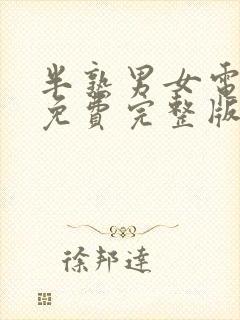 半熟男女電
免費完整版
徐邦達